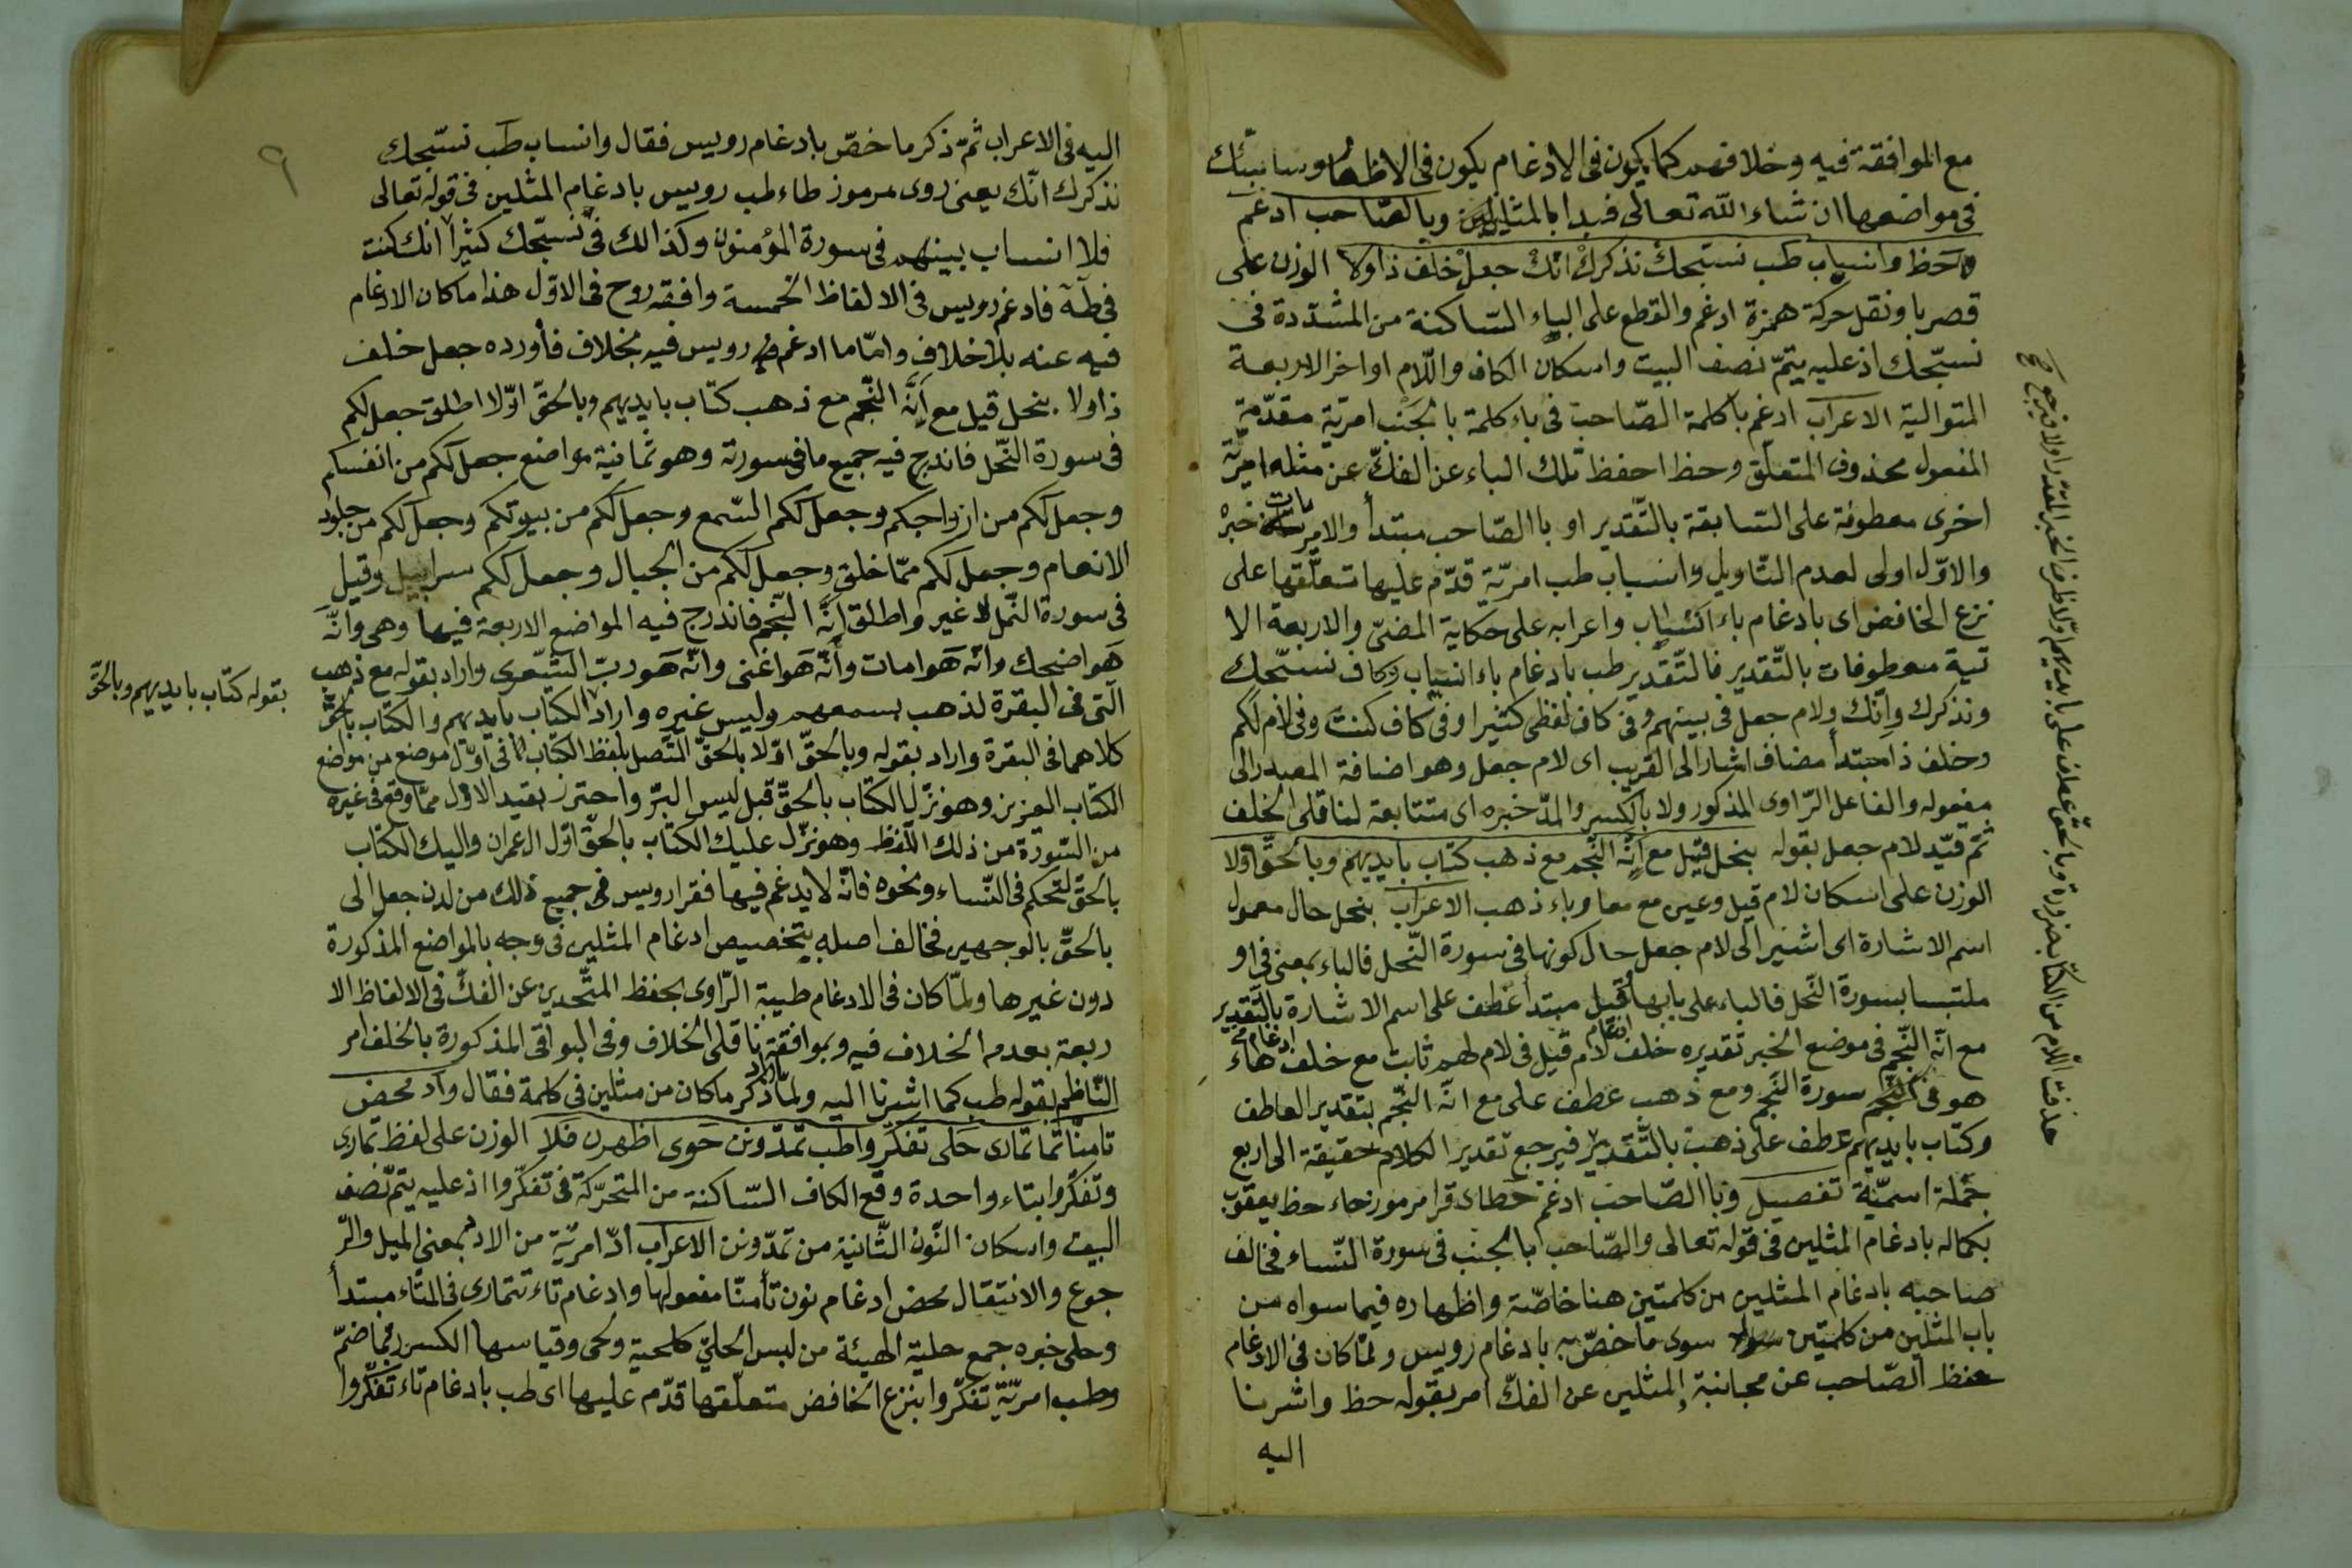 مع الموافقة فيه وخلافهم كما يكون فى الادغام يكون فى الاظهار وسانبئك
فى مواضعها ان شاء الله تعالى فبدا بالمثلين وبالصاحب ادغم
حط وانساب طب نسبحك نذكرك انك جعل خلف ذا ولا الوزن على
قصر با ونقل حركة همزة ادغم والقطع على الباء الساكنة من المشددة فى
نسبحك اذ عليه يتم نصف البيت واسكان الكاف واللام اواخر الاربعة
المتوالية الاعراب ادغم با كلمة الصاحب فى باء كلمة بالجنب امرية مقدمة
المفعول محذوف المتعلق وحط احفظ تلك الباء عن الفك عن مثله امرية
اخرى معطوفة على السابقة بالتقدير او با الصاحب مبتدأ والامريتان خبره
والاول اولى لعدم التاويل وانساب طب امرية قدم عليها متعلقها على
نزع الخافض اى بادغام باء انساب واعرابه على حكاية المضى والاربعة الا
تية معطوفات بالتقدير فالتقدير طب بادغام باء انساب وكاف نسبحك
ونذكرك وانك ولام جعل فى بينهم وفى كاف لفظى كثيرا وفى كاف كنت وفى لام لكم
وخلف ذا مبتدأ مضاف اشار الى القريب اى لام جعل وهو اضافة المصدر الى
مفعوله والفاعل الراوى المذكور ولا بالكسر والمد خبره اى متتابعة لناقلى الخلف
ثم قيد لام جعل بقوله بنحل قبل مع انه النجم مع ذهب كتاب بايديهم وبالحق اولا
الوزن على اسكان لام قبل وعين مع معا وباء ذهب الاعراب بنحل حال معمول
اسم الاشارة اى اشير الى لام جعل حال كونها فى سورة النحل فالباء بمعنى فى او
ملتبسا بسورة النحل فالباء على بابها وقبل مبتدأ عطف على اسم الاشارة بالتقدير
مع انه النجم فى موضع الخبر تقديره خلف ادغام لام قبل فى لام لهم ثابت مع خلف ادغام هاء
هو فى النجم سورة النجم ومع ذهب عطف على مع انه النجم بتقدير العاطف
وكتاب بايديهم عطف على ذهب بالتقدير فيرجع تقدير الكلام حقيقة الى اربع
جملة اسمية تفصيل وبا الصاحب ادغم حط اى قرا مرموز حاء حط يعقوب
بكماله بادغام المثلين فى قوله تعالى والصاحب بالجنب فى سورة النساء فخالف
صاحبه بادغام المثلين من كلمتين هنا خاصة واظهاره فيما سواه من
باب المثلين من كلمتين سوى ما خص به بادغام رويس ولما كان فى الادغام
حفظ الصاحب عن مجانبة المثلين عن الفك امر بقوله حط واشرنا
اليه
حذفت اللام من الكتاب ضرورة وبالحق عطف على بايديهم اولا ظرف الخبر المقدر اولا فيرجع
٩
اليه فى الاعراب ثم ذكر ما خص بادغام رويس فقال وانساب طب نسبحك
نذكرك انك يعنى روى مرموز طاء طب رويس بادغام المثلين فى قوله تعالى
فلا انساب بينهم فى سورة المؤمنون وكذالك فى نسبحك كثيرا انك كنت
فى طه فادغم رويس فى الالفاظ الخمسة وافقه روح فى الاول هذا ما كان الادغام
فيه عنه بلا خلاف واما ما ادغم رويس فيه بخلاف فأورده جعل خلف
ذا ولا بنحل قبل مع انه النجم مع ذهب كتاب بايديهم وبالحق اولا اطلق جعل لكم
فى سورة النحل فاندرج فيه جميع ما فى سورته وهو ثمانية مواضع جعل لكم من انفسكم
وجعل لكم من ازواجكم وجعل لكم السمع وجعل لكم من بيوتكم وجعل لكم من جلود
الانعام وجعل لكم مما خلق وجعل لكم من الجبال وجعل لكم سرابيل وقيل
فى سورة النمل لا غير واطلق انه النجم فاندرج فيه المواضع الاربعة فيها وهى وانه
هو اضحك وانه هو امات وأنه هو اغنى وانه هو رب الشعرى واراد بقوله مع ذهب
التى فى البقرة لذهب بسمعهم وليس غيره واراد الكتاب بايديهم والكتاب بالحق
بقوله كتاب بايديهم وبالحق
كلاهما فى البقرة واراد بقوله وبالحق اولا بالحق المتصل بلفظ الكتاب فى اول موضع من مواضع
الكتاب العزيز وهو نزل الكتاب بالحق قبل ليس البر واحترز بقيد الاول مما وقع فى غيره
من السورة من ذلك اللفظ وهو نزل عليك الكتاب بالحق اول ال عمران واليك الكتاب
بالحق لتحكم فى النساء ونحوه فانه لا يدغم فيها فقرا رويس فى جميع ذلك من لدن جعل الى
بالحق بالوجهين فخالف اصله بتخصيص ادغام المثلين فى وجه بالمواضع المذكورة
دون غيرها ولما كان فى الادغام طيبة الراوى بحفظ المتحدين عن الفك فى الالفاظ الا
ربعة بعدم الخلاف فيه وبموافقة ناقلى الخلاف وفى البواقى المذكورة بالخلف امر
الناظم بقوله طب كما اشرنا اليه ولما اراد ذكر ما كان من مثلين فى كلمة فقال واد محض
تامنا تمارى حلى تفكروا طب تمدونن حوى اظهرن فلا الوزن على لفظ تمارى
وتفكروا بتاء واحدة وقع الكاف الساكنة من المتحركة فى تفكروا اذ عليه يتم نصف
البيت واسكان النون الثانية من تمدونن الاعراب اد امرية من الاد بمعنى الميل والر
جوع والانتقال محض ادغام نون تأمنا مفعولها وادغام تاء تتمارى فى التاء مبتدأ
وحلى خبره جمع حلية الهيئة من لبس الحلى كلحية ولحى وقياسها الكسر ربما ضم
وطب امرية تفكروا بنزع الخافض متعلقها قدم عليها اى طب بادغام تاء تفكروا